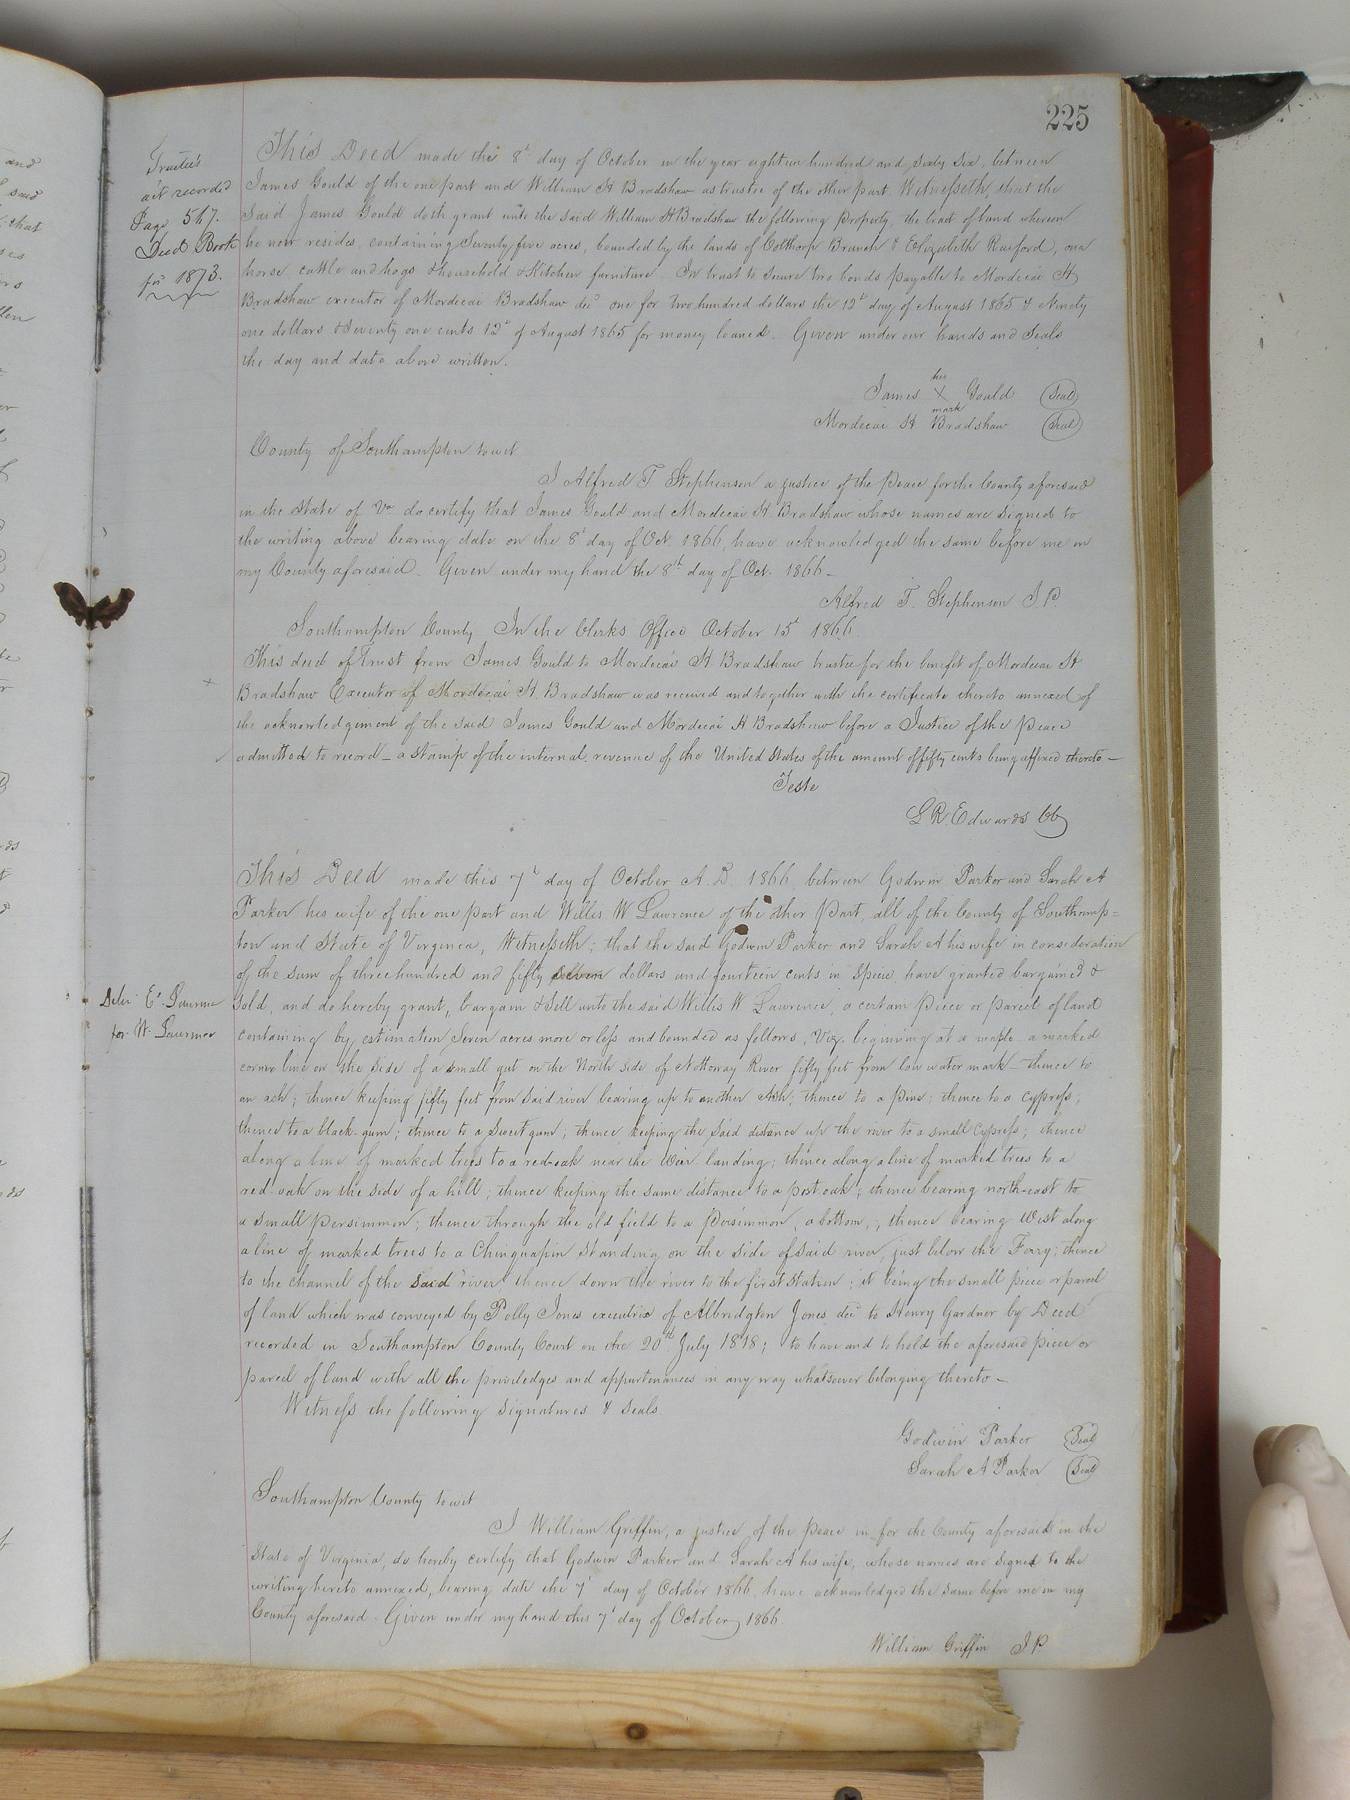 225
Trustee's
act recorded
Page 517.
Deed Book
for 1873.
This Deed made the 8th day of October in the year eighteen hundred and sixty six, between
James Gould of the one part and William H Bradshaw as trustee of the other part, Witnesseth, that the
said James Gould doth grant unto the said William H Bradshaw the following property, the tract of land whereon
he now resides, containing Seventy five acres, bounded by the lands of Colthorp Branch & Elizabeth, one
horse, cattle and hogs & household & Kitchen furniture. In trust to secure two bonds payable to Mordecai H
Bradshaw executor of Mordecai Bradshaw decd one for two hundred dollars the 12th day of August 1865 & Ninety
one dollars & Seventy one cents 12th of August 1865 for money loaned. Given under our hands and Seals
the day and date above written.
his
James X Gould (Seal)
mark
Mordecai H Bradshaw (Seal)
County of Southampton to wit
I Alfred T Stephenson a justice of the Peace for the County aforesaid
in the State of Va do certify that James Gould and Mordecai H Bradshaw whose names are signed to
the writing above bearing date on the 8th day of Oct. 1866, have acknowledged the same before me in
my County aforesaid. Given under my hand the 8th day of Oct. 1866 –
Alfred T. Stephenson J.P.
Southampton County In the Clerks Office October 15th 1866.
This deed of Trust from James Gould to Mordecai H Bradshaw trustee for the benefit of Mordecai H
Bradshaw Executor of Mordecai H Bradshaw was received and together with the certificate thereto annexed of
the acknowledgement of the said James Gould and Mordecai H Bradshaw before a Justice of the Peace
admitted to record – a Stamp of the internal revenue of the United States of the amount of fifty cents being affixed thereto –
Teste
L R Edwards CC
This Deed made this 7th day of October A.D. 1866, between Godwin Parker and Sarah A
Parker his wife of the one part and Willis W Lawrence of the other Part, all of the County of Southamp=
ton and State of Virginia, Witnesseth; that the said Godwin Parker and Sarah A his wife in consideration
of the sum of three hundred and fifty seven dollars and fourteen cents in Specie, have granted bargained &
Sold, and do hereby grant, bargain & Sell unto the said Willis W Lawrence, a certain piece or parcel of land
containing by estimation Seven acres more or less and bounded as follows, Viz, beginning at a maple, a marked
corner line on the side of a small gut on the North side of Nottoway River fifty feet from low water mark – thence to
an ash; thence keeping fifty feet from said river bearing up to another Ash; thence to a pine; thence to a cypress;
thence to a black-gum; thence to a Sweet gum; thence keeping the said distance up the river to a small Cypress; thence
along a line of marked trees to a red-oak near the landing; thence along a line of marked trees to a
red-oak on the side of a hill; thence keeping the same distance to a post oak; thence bearing north-east to
a small Persimmon; thence through the old field to a Persimmon, a bottom,; thence bearing West along
a line of marked trees to a Chinquapin standing on the side of said river, just below the Ferry; thence
to the channel of the said river thence down the river to the first station; it being the small piece or parcel
of land which was conveyed by Polly Jones executrix of Albridgton Jones decd to Henry Gardner by Deed
recorded in Southampton County Court on the 20th July 1818; to have and to hold the aforesaid piece or
parcel of land with all the priviledges and appurtenances in any way whatsoever belonging thereto –
Witness the following signatures & seals.
Godwin Parker (Seal)
Sarah A Parker (Seal)
Southampton County to wit
I William Griffin, a justice of the peace in for the County aforesaid in the
State of Virginia, do hereby certify that Godwin Parker and Sarah A his wife, whose names are signed to the
writing hereto annexed, bearing date the 7th day of October 1866, have acknowledged the same before me in my
County aforesaid. Given under my hand this 7th day of October, 1866.
William Griffin J.P.